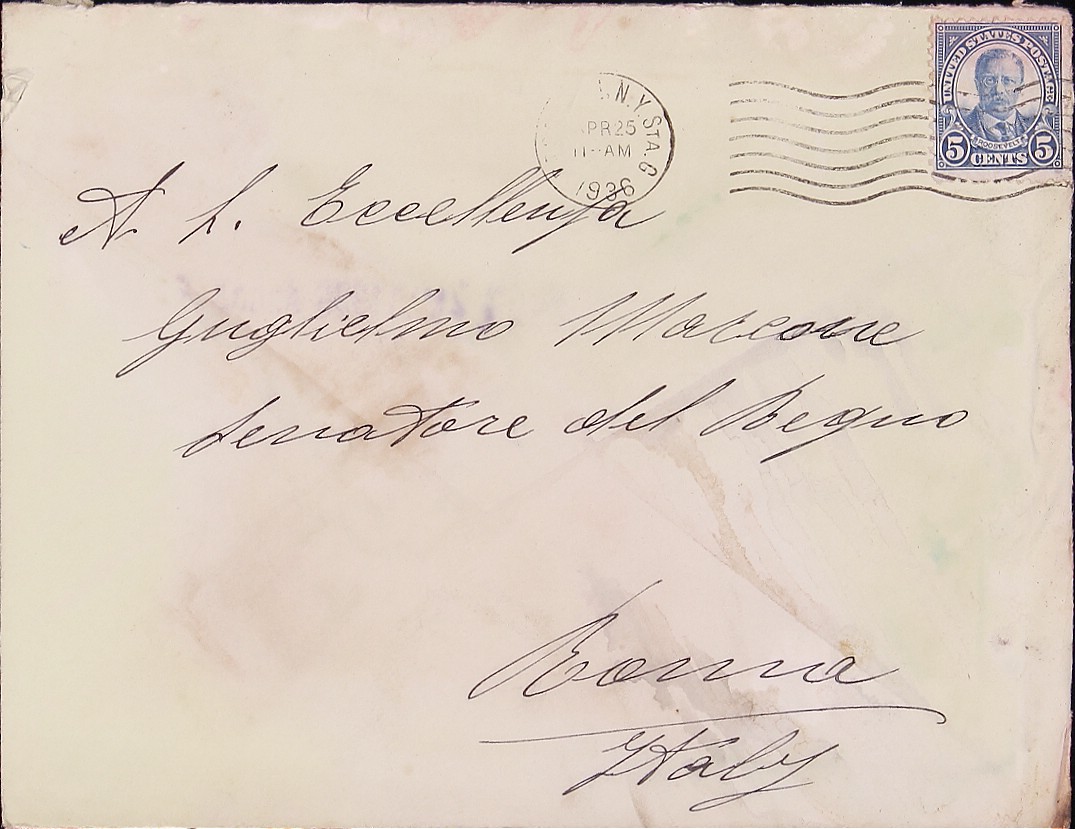 UNITED STATES POSTAGE
ROOSEVELT
5 CENTS 5
N.Y. STA. G
APR 25
11-AM
1936
A S. Eccellenza
Guglielmo Marconi
Senatore del Regno
Roma
Italy